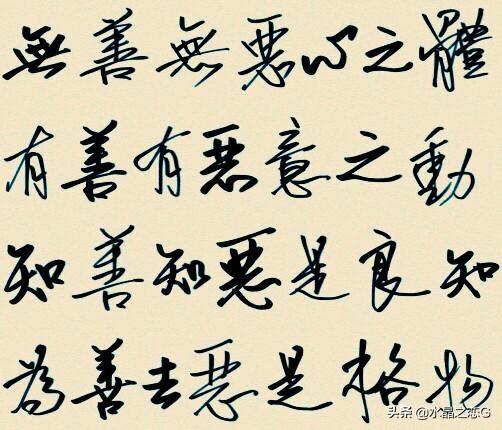 無善無惡心之體
有善有惡意之動
知善知惡是良知
為善去惡是格物
头条 @水晶之恋G